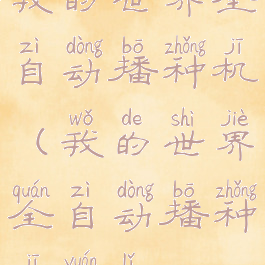 我的世界全
zì dòng bō zhǒng jī
自动播种机
wǒ de shì jiè
（我的世界
quán zì dòng bō zhǒng
全自动播种
jī yuán lǐ